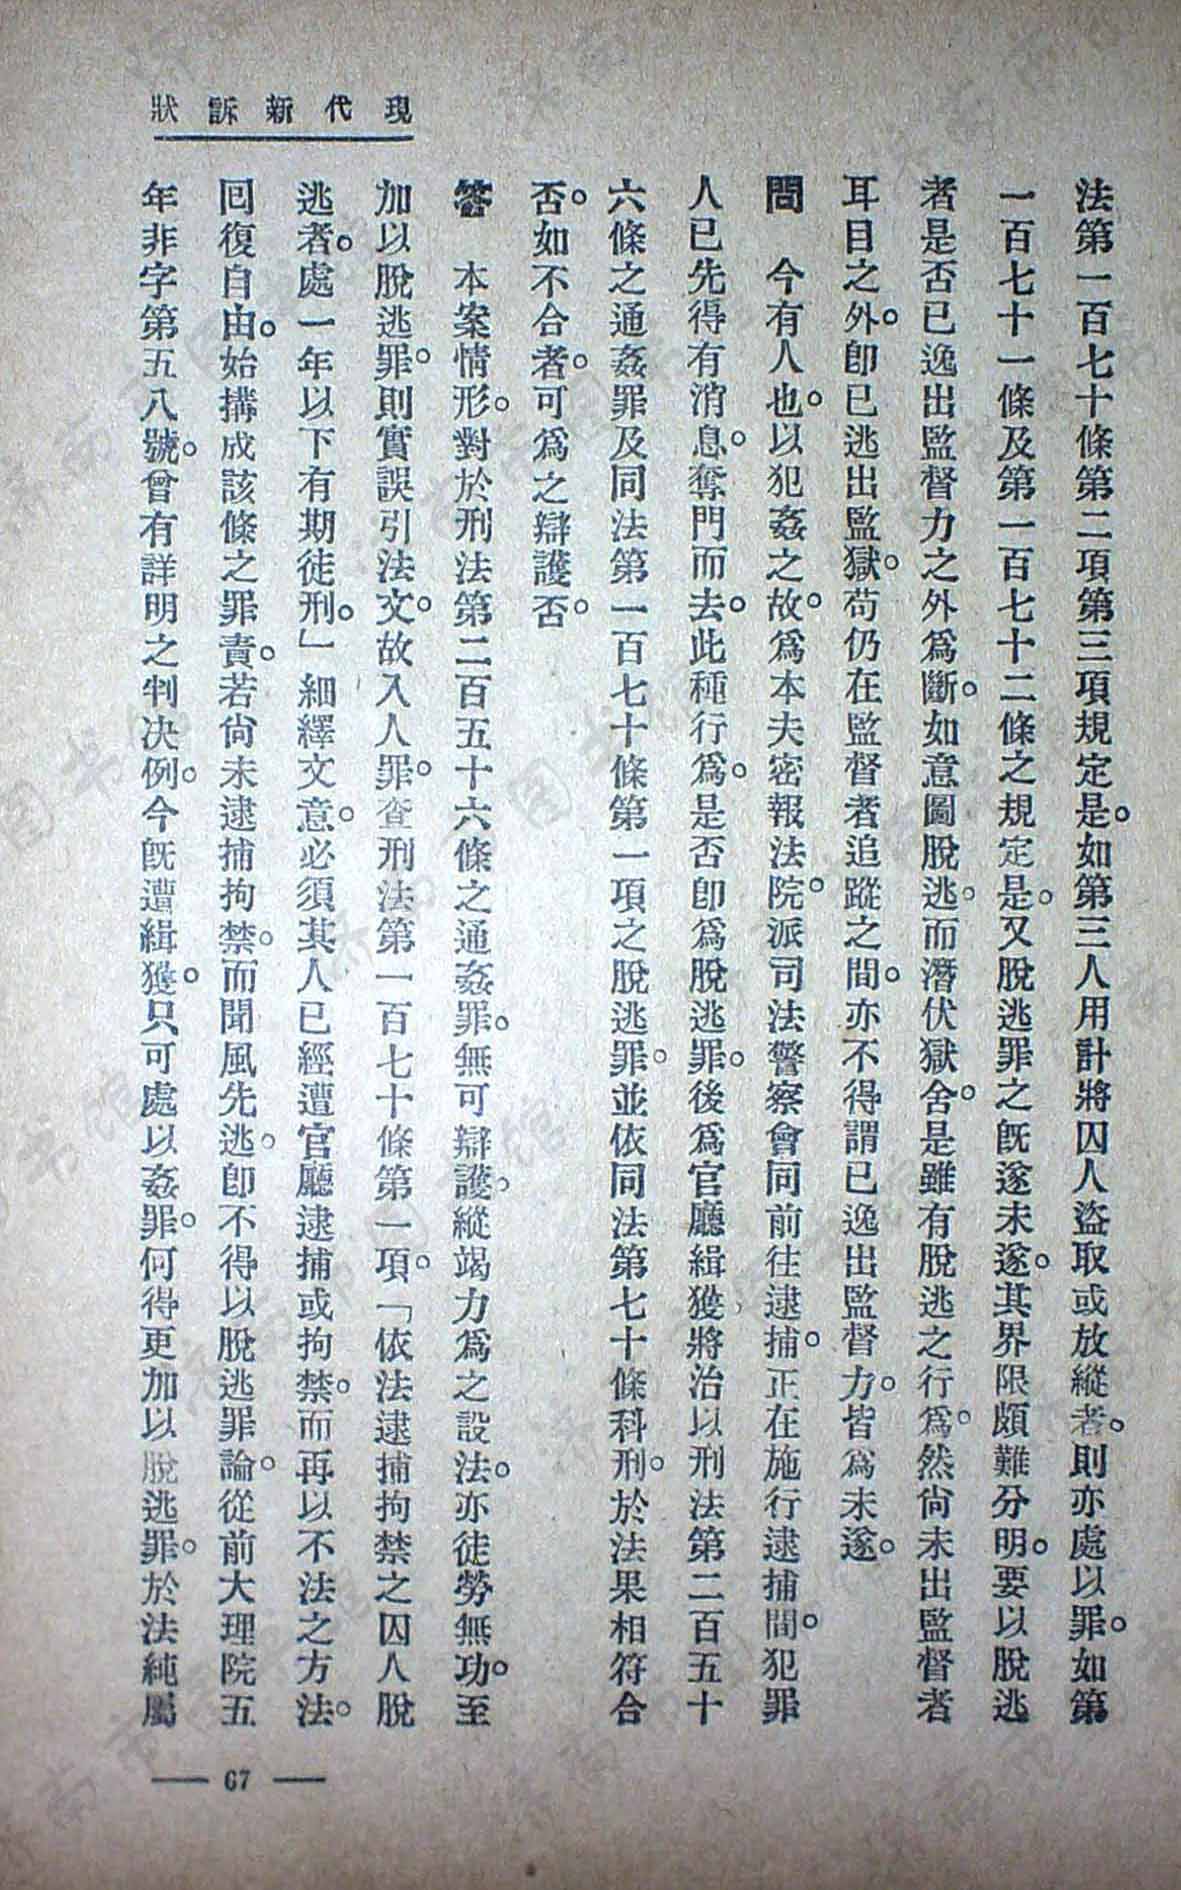 現代新訴狀
法第一百七十條第二項第三項規定是。如第三人用計將囚人盜取或放縱者。則亦處以罪。如第
一百七十一條及第一百七十二條之規定是。又脫逃罪之既遂未遂。其界限頗難分明。要以脫逃
者是否已逸出監督力之外爲斷。如意圖脫逃。而潛伏獄舍。是雖有脫逃之行爲。然尙未出監督者
耳目之外。卽已逃出監獄。苟仍在監督者追蹤之間。亦不得謂已逸出監督力。皆爲未遂。
問　今有人也。以犯姦之故。爲本夫密報法院。派司法警察會同前往逮捕。正在施行逮捕間。犯罪
人已先得有消息。奪門而去。此種行爲。是否卽爲脫逃罪。後爲官廳緝獲、將治以刑法第二百五十
六條之通姦罪及同法第一百七十條第一項之脫逃罪。並依同法第七十條科刑。於法果相符合
否。如不合者。可爲之辯護否。
答　本案情形。對於刑法第二百五十六條之通姦罪。無可辯護。縱竭力爲之設法。亦徒勞無功。至
加以脫逃罪。則實誤引法文。故入人罪。查刑法第一百七十條第一項。「依法逮捕拘禁之囚人脫
逃者。處一年以下有期徒刑。」細繹文意。必須其人已經遭官廳逮捕或拘禁。而再以不法之方法。
回復自由。始搆成該條之罪責。若尙未逮捕拘禁。而聞風先逃。卽不得以脫逃罪論。從前大理院五
年非字第五八號。曾有詳明之判决例。今旣遭緝獲。只可處以姦罪。何得更加以脫逃罪。於法純屬
— 67 —